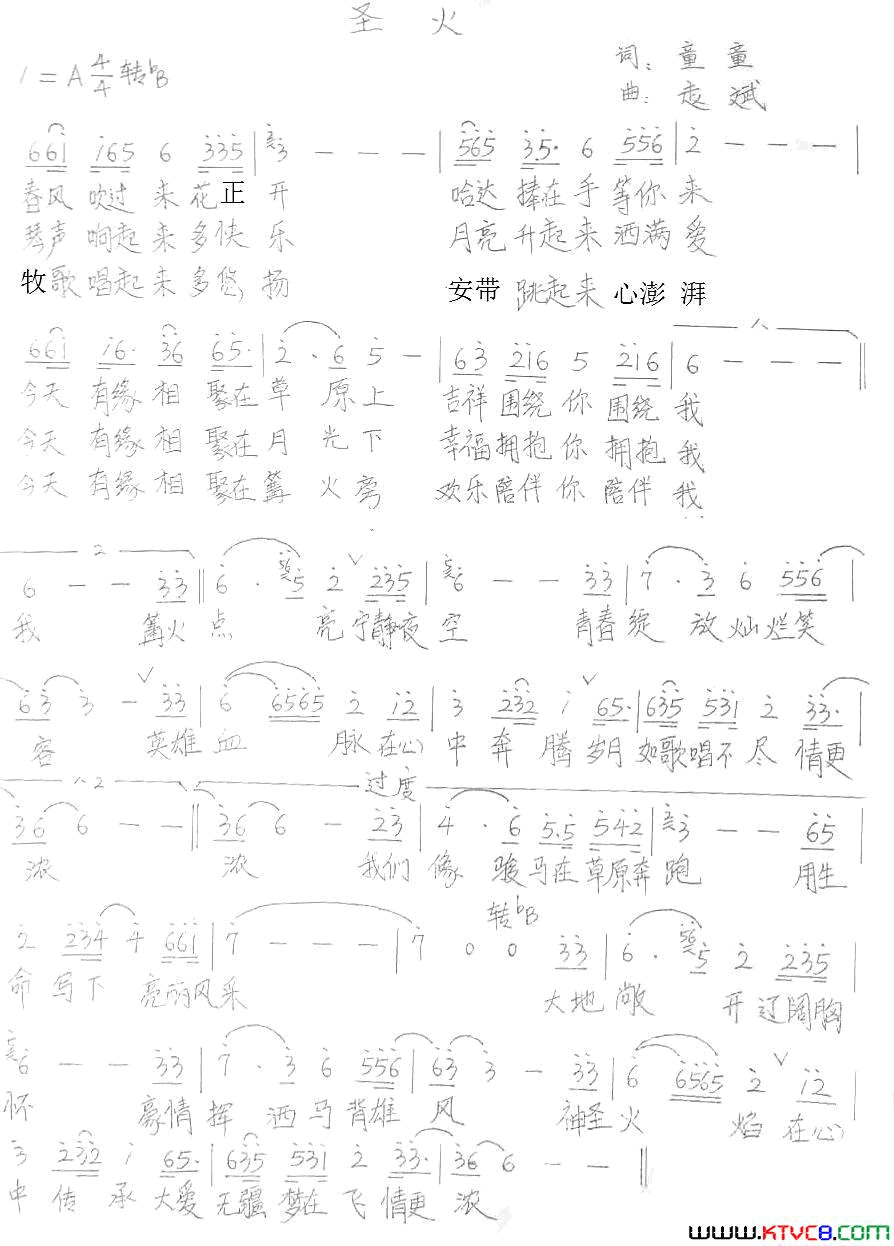 圣火
1=A 4/4 转bB
词：童童
曲：志斌
661 165 6 335 | 3 — — — | 565 35· 6 556 | 2 — — — |
春风吹过来花正开 哈达捧在手等你来
琴声响起来多快乐 月亮升起来洒满爱
牧歌唱起来多悠扬 安带跳起来心澎湃
661 16· 36 65· | 2· 6 5 — | 63 216 5 216 | 6 — — — ‖
今天有缘相聚在草原上 吉祥围绕你围绕我
今天有缘相聚在月光下 幸福拥抱你拥抱我
今天有缘相聚在篝火旁 欢乐陪伴你陪伴我
2
6 — — 33 ‖ 6· 5 2 235 | 6 — — 33 | 7· 3 6 556 |
我 篝火点亮宁静夜空 青春绽放灿烂笑
63 3 — 33 | 6 6565 2 12 | 3 232 1 65· | 635 531 2 33· |
容 英雄血脉在心中奔腾岁月如歌唱不尽情更
过度
36 6 — — ‖ 36 6 — 23 | 4· 6 5·5 542 | 3 — — 65 |
浓 浓 我们像骏马在草原奔跑 用生
转bB
2 234 4 661 | 7 — — — | 7 0 0 33 | 6· 5 2 235 |
命写下亮丽风采 大地敞开辽阔胸
6 — — 33 | 7· 3 6 556 | 63 3 — 33 | 6 6565 2 12 |
怀 豪情挥洒马背雄风 神圣火焰在心
3 232 1 65· | 635 531 2 33· | 36 6 — — ‖
中传承大爱无疆梦在飞情更浓
www.KTVC8.com